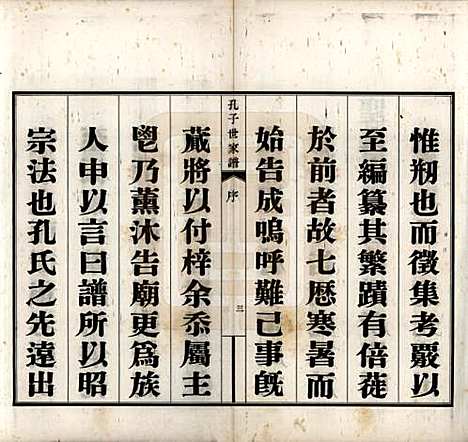 惟剏也而徵集考嚴以
至編纂其繁蹟有倍蓰
於前者故七歷寒暑而
始告成嗚呼難已事旣
孔子世家譜
序
三
蕆將以付梓余忝屬主
鬯乃薰沐告廟更爲族
人申以言曰譜所以昭
宗法也孔氏之先遠出